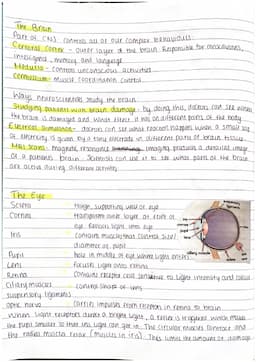 The Brain
Part of CNS. Controls all of our complex behaviours.
Cerebral Cortex - outer layer of the brain. Responsible for consciousness,
intelligence, memory and language
Medulla - controls unconscious activities
Cerebellum - muscle coordination control
Ways neuroscientists study the brain
Studying patients with brain damage - by doing this, doctors can see where
the brain is damaged and what effect it has on different parts of the body
Electrical Stimulation - doctors can see what reaction happens when a small bit
of electricity is given by a tiny electrode in different parts of brain tissue
MRI Scans - magnetic resonance imaging produces a detailed image
of a patients brain. Scientists can use it to see what parts of the brain
are active during different activities
The Eye
Sclera Tough, supporting wall of eye
Cornea Transparent outer layer at front of
eye. Refracts light into eye
Iris Contains muscles that control size/
diameter of pupil
Pupil hole in middle of eye where light enters
Lens focuses light onto retina
Retina Contains receptor cells sensitive to light intensity and colour
Ciliary muscles control shape of lens
suspensory ligaments
optic nerve carries impulses from receptors in retina to brain
When light receptors detect a bright light, a reflex is triggered which makes
the pupil smaller so that less light can get in. The circular muscles contract and
the radial muscles relax (muscles in iris). This limits the amount of damage